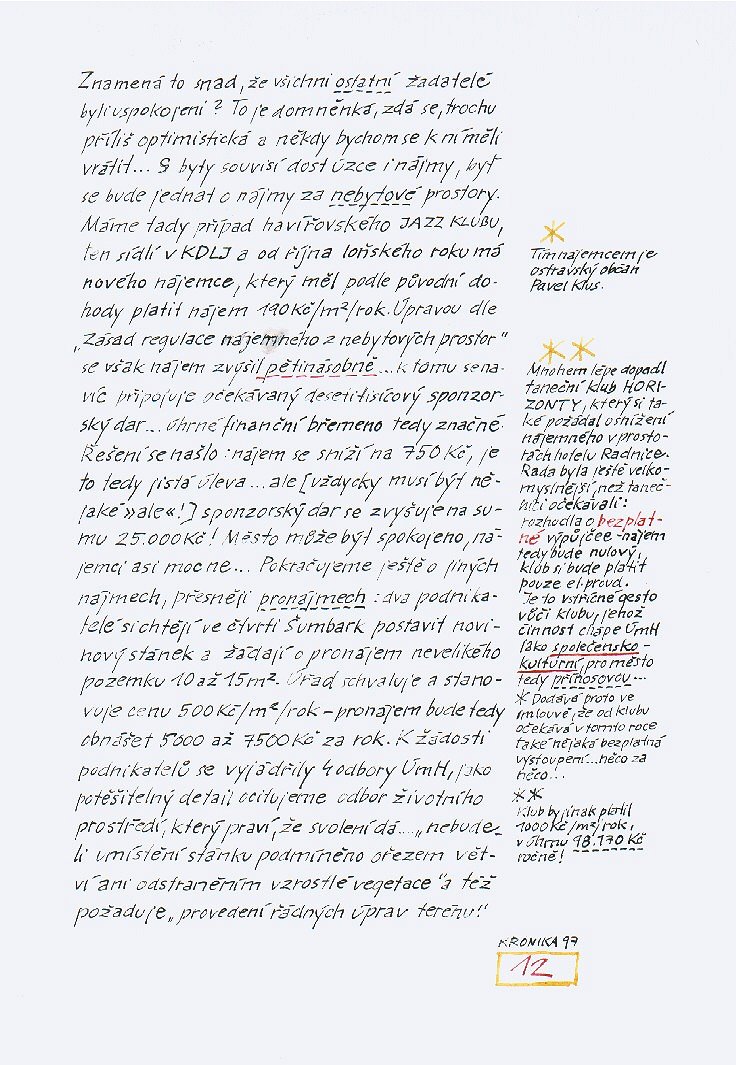 Znamená to snad, že všichni ostatní žadatelé
byli uspokojeni? To je domněnka, zdá se, trochu
příliš optimistická a někdy bychom se k ní měli
vrátit... S byty souvisí dost úzce i nájmy, byť
se bude jednat o nájmy za nebytové prostory.
Máme tady případ havířovského JAZZ KLUBU,
ten sídlí v KDLJ a od října loňského roku má
nového nájemce, který měl podle původní do-
hody platit nájem 190 Kč/m²/rok. Úpravou dle
„Zásad regulace nájemného z nebytových prostor"
se však nájem zvýšil pětinásobně... k tomu se na-
víc připojuje očekávaný desetitisícový sponzor-
ský dar... úhrné finanční břemeno tedy značné.
Řešení se našlo: nájem se sníží na 750 Kč, je
to tedy jistá úleva... ale [vždycky musí být ně-
jaké »ale«!] sponzorský dar se zvyšuje na su-
mu 25.000 Kč! Město může být spokojeno, ná-
jemci asi moc ne... Pokračujeme ještě o jiných
nájmech, přesněji pronájmech: dva podnika-
telé si chtějí ve čtvrti Šumbark postavit novi-
nový stánek a žádají o pronájem nevelikého
pozemku 10 až 15 m². Úřad schvaluje a stano-
vuje cenu 500 Kč/m²/rok – pronájem bude tedy
obnášet 5000 až 7500 Kč za rok. K žádosti
podnikatelů se vyjádřily 4 odbory ÚmH, jako
potěšitelný detail ocitujeme odbor životního
prostředí, který praví, že svolení dá.... „nebude-
li umístění stánku podmíněno ořezem vět-
ví ani odstraněním vzrostlé vegetace" a též
požaduje „provedení řádných úprav terénu!"
*
Tím nájemcem je
ostravský občan
Pavel Klus.
**
Mnohem lépe dopadl
taneční klub HORI-
ZONTY, který si ta-
ké požádal o snížení
nájemného v prosto-
rách hotelu Radnice.
Rada byla ještě velko-
myslnější, než taneč-
níci očekávali:
rozhodla o bezplat-
né výpůjčce – nájem
tedy bude nulový,
klub si bude platit
pouze el. proud.
Je to vstřícné gesto
vůči klubu, jehož
činnost chápe ÚmH
jako společensko-
kulturní, pro město
tedy přínosovou...
* Dodává proto ve
smlouvě, že od klubu
očekává v tomto roce
také nějaká bezplatná
vystoupení... něco za
něco...
**
Klub by jinak platil
1000 Kč/m²/rok,
v úhrnu 98.170 Kč
ročně!
KRONIKA 97
12